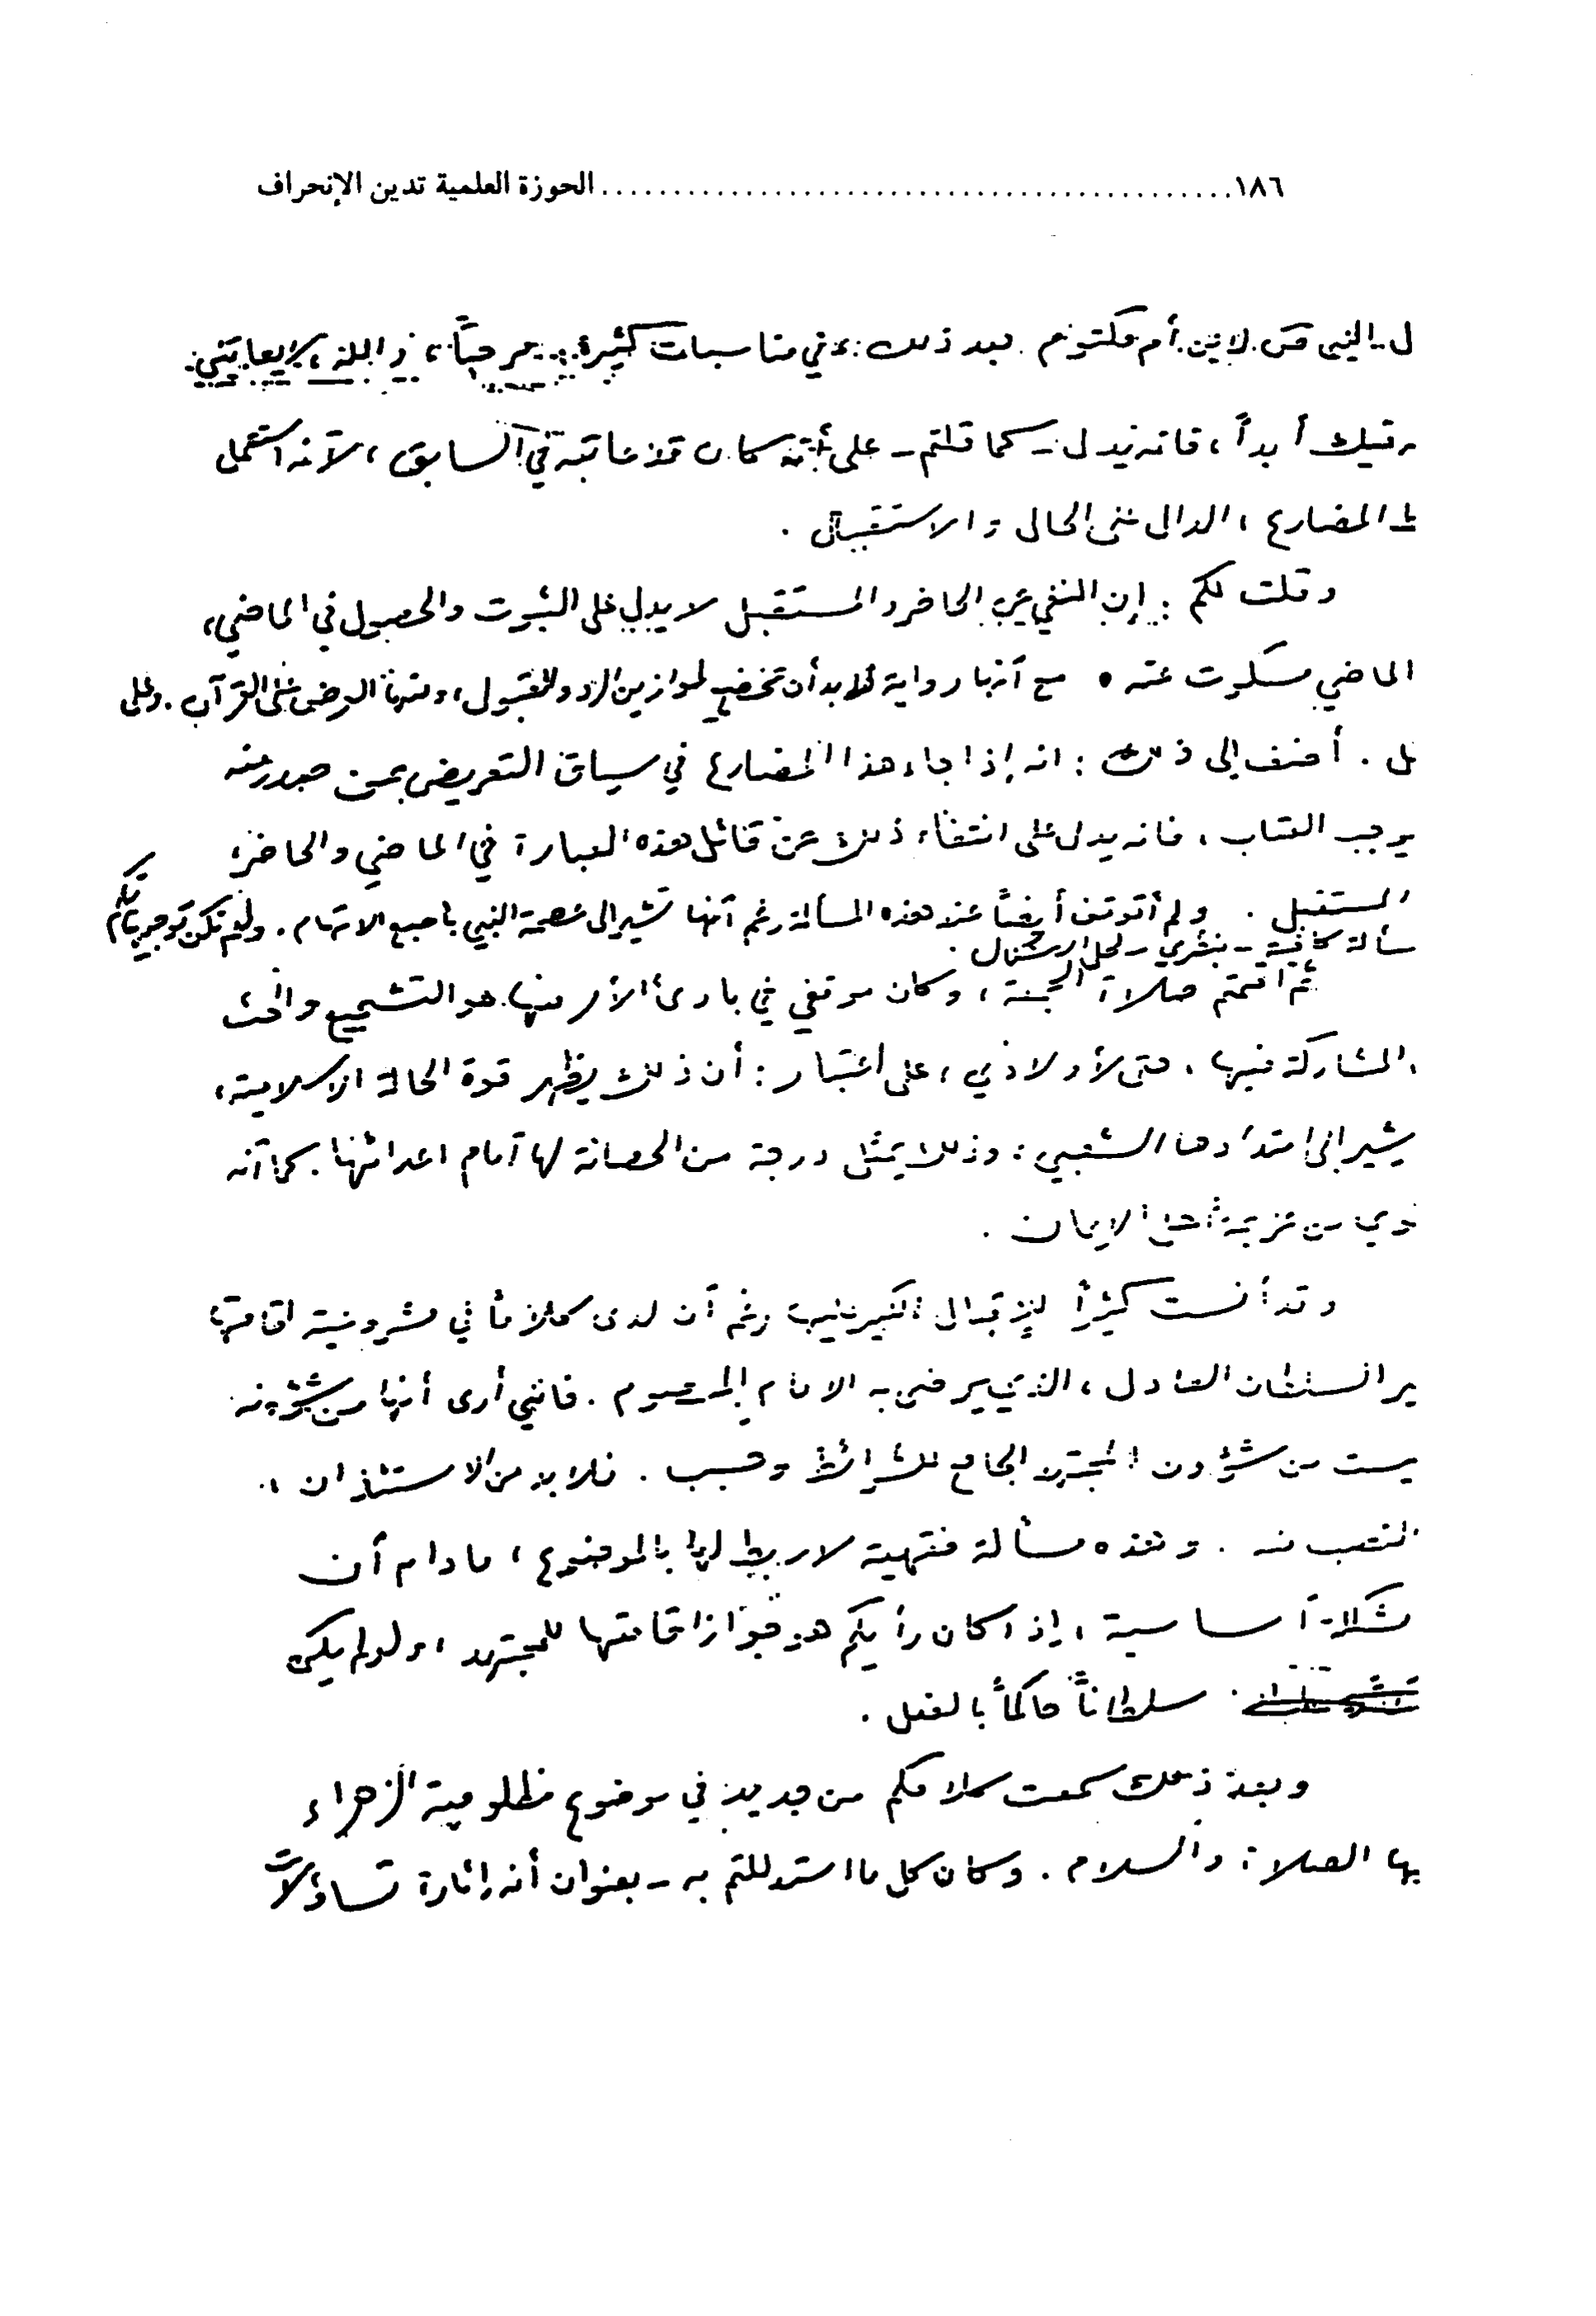 ١٨٦ ............................................ الحوزة العلمية تدين الإنحراف
ل النبي ص لابن أم مكتوم بعد ذلك: في مناسبات كثيرة: مرحباً، والله لا يعاتبني
فيك أبداً، فانه يدل - كما قلتم - على أنه كان قد عاتبه في السابق، لأنه استعمل
المضارع، الدال على الحال والاستقبال.
وقلت لكم: إن النفي عن الحاضر والمستقبل لا يدل على الثبوت والحصول في الماضي،
الماضي مسكوت عنه. مع أنها رواية لابد أن تخضع لموازين الرد والقبول، ومنها العرض على القرآن. وعلى
ل. أضف إلى ذلك: انه إذا جاء هذا المضارع في سياق التعريض بمن صدر منه
يوجب العتاب، فانه يدل على انتفاء ذلك عن قائل هذه العبارة في الماضي والحاضر
المستقبل. ولم أتوقف أيضاً عند هذه المسألة رغم أنها تشير إلى عصمة النبي بأصبع الاتهام. ولم تكن توجيهاتكم
سألة كافية - بنظري - لحل الإشكال.
ثم أقمتم صلاة الجمعة، وكان موقفي في بادئ الأمر منها. هو التشجيع والحث
المشاركة فيها، حتى لأولادي، على اعتبار: أن ذلك يظهر قوة الحالة الاسلامية،
يشير إلى امتدادها الشعبي: وذلك يمثل درجة من الحصانة لها أمام اعدائها. كما أنه
وي من عزيمة أهل الايمان.
وقد أنست كثيراً للإقبال الكبير عليها رغم أن لدي كلاماً في مشروعية اقامتها
ير السلطان العادل، الذي يرضى به الامام المعصوم. فانني أرى أنها من شؤونه
يست من شؤون المجتهد الجامع للشرائط وحسب. فلابد من الاستئذان،
النصب منه. وهذه مسألة فقهية لا ربط لها بالموضوع، ما دام أن
شكلة أساسية، إذا كان رأيكم هو جواز اقامتها للمجتهد، ولو لم يكن
سلطاناً حاكماً بالفعل.
وبعد ذلك سمعت كلامكم من جديد في موضوع مظلومية الزهراء
يها الصلاة والسلام. وكان كل ما استدللتم به - بعنوان أنه إثارة تساؤلات